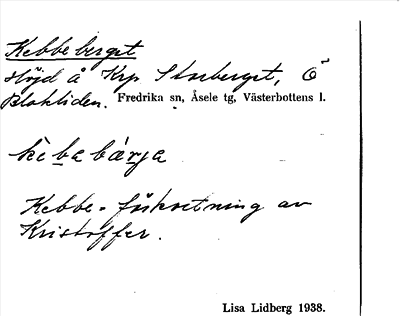 Kebbeberget
Höjd å Krp Storberget, Ö
Blokliden. Fredrika sn, Åsele tg, Västerbottens l.
kèbabárja
Kebbe = förkortning av
Kristoffer.
Lisa Lidberg 1938.